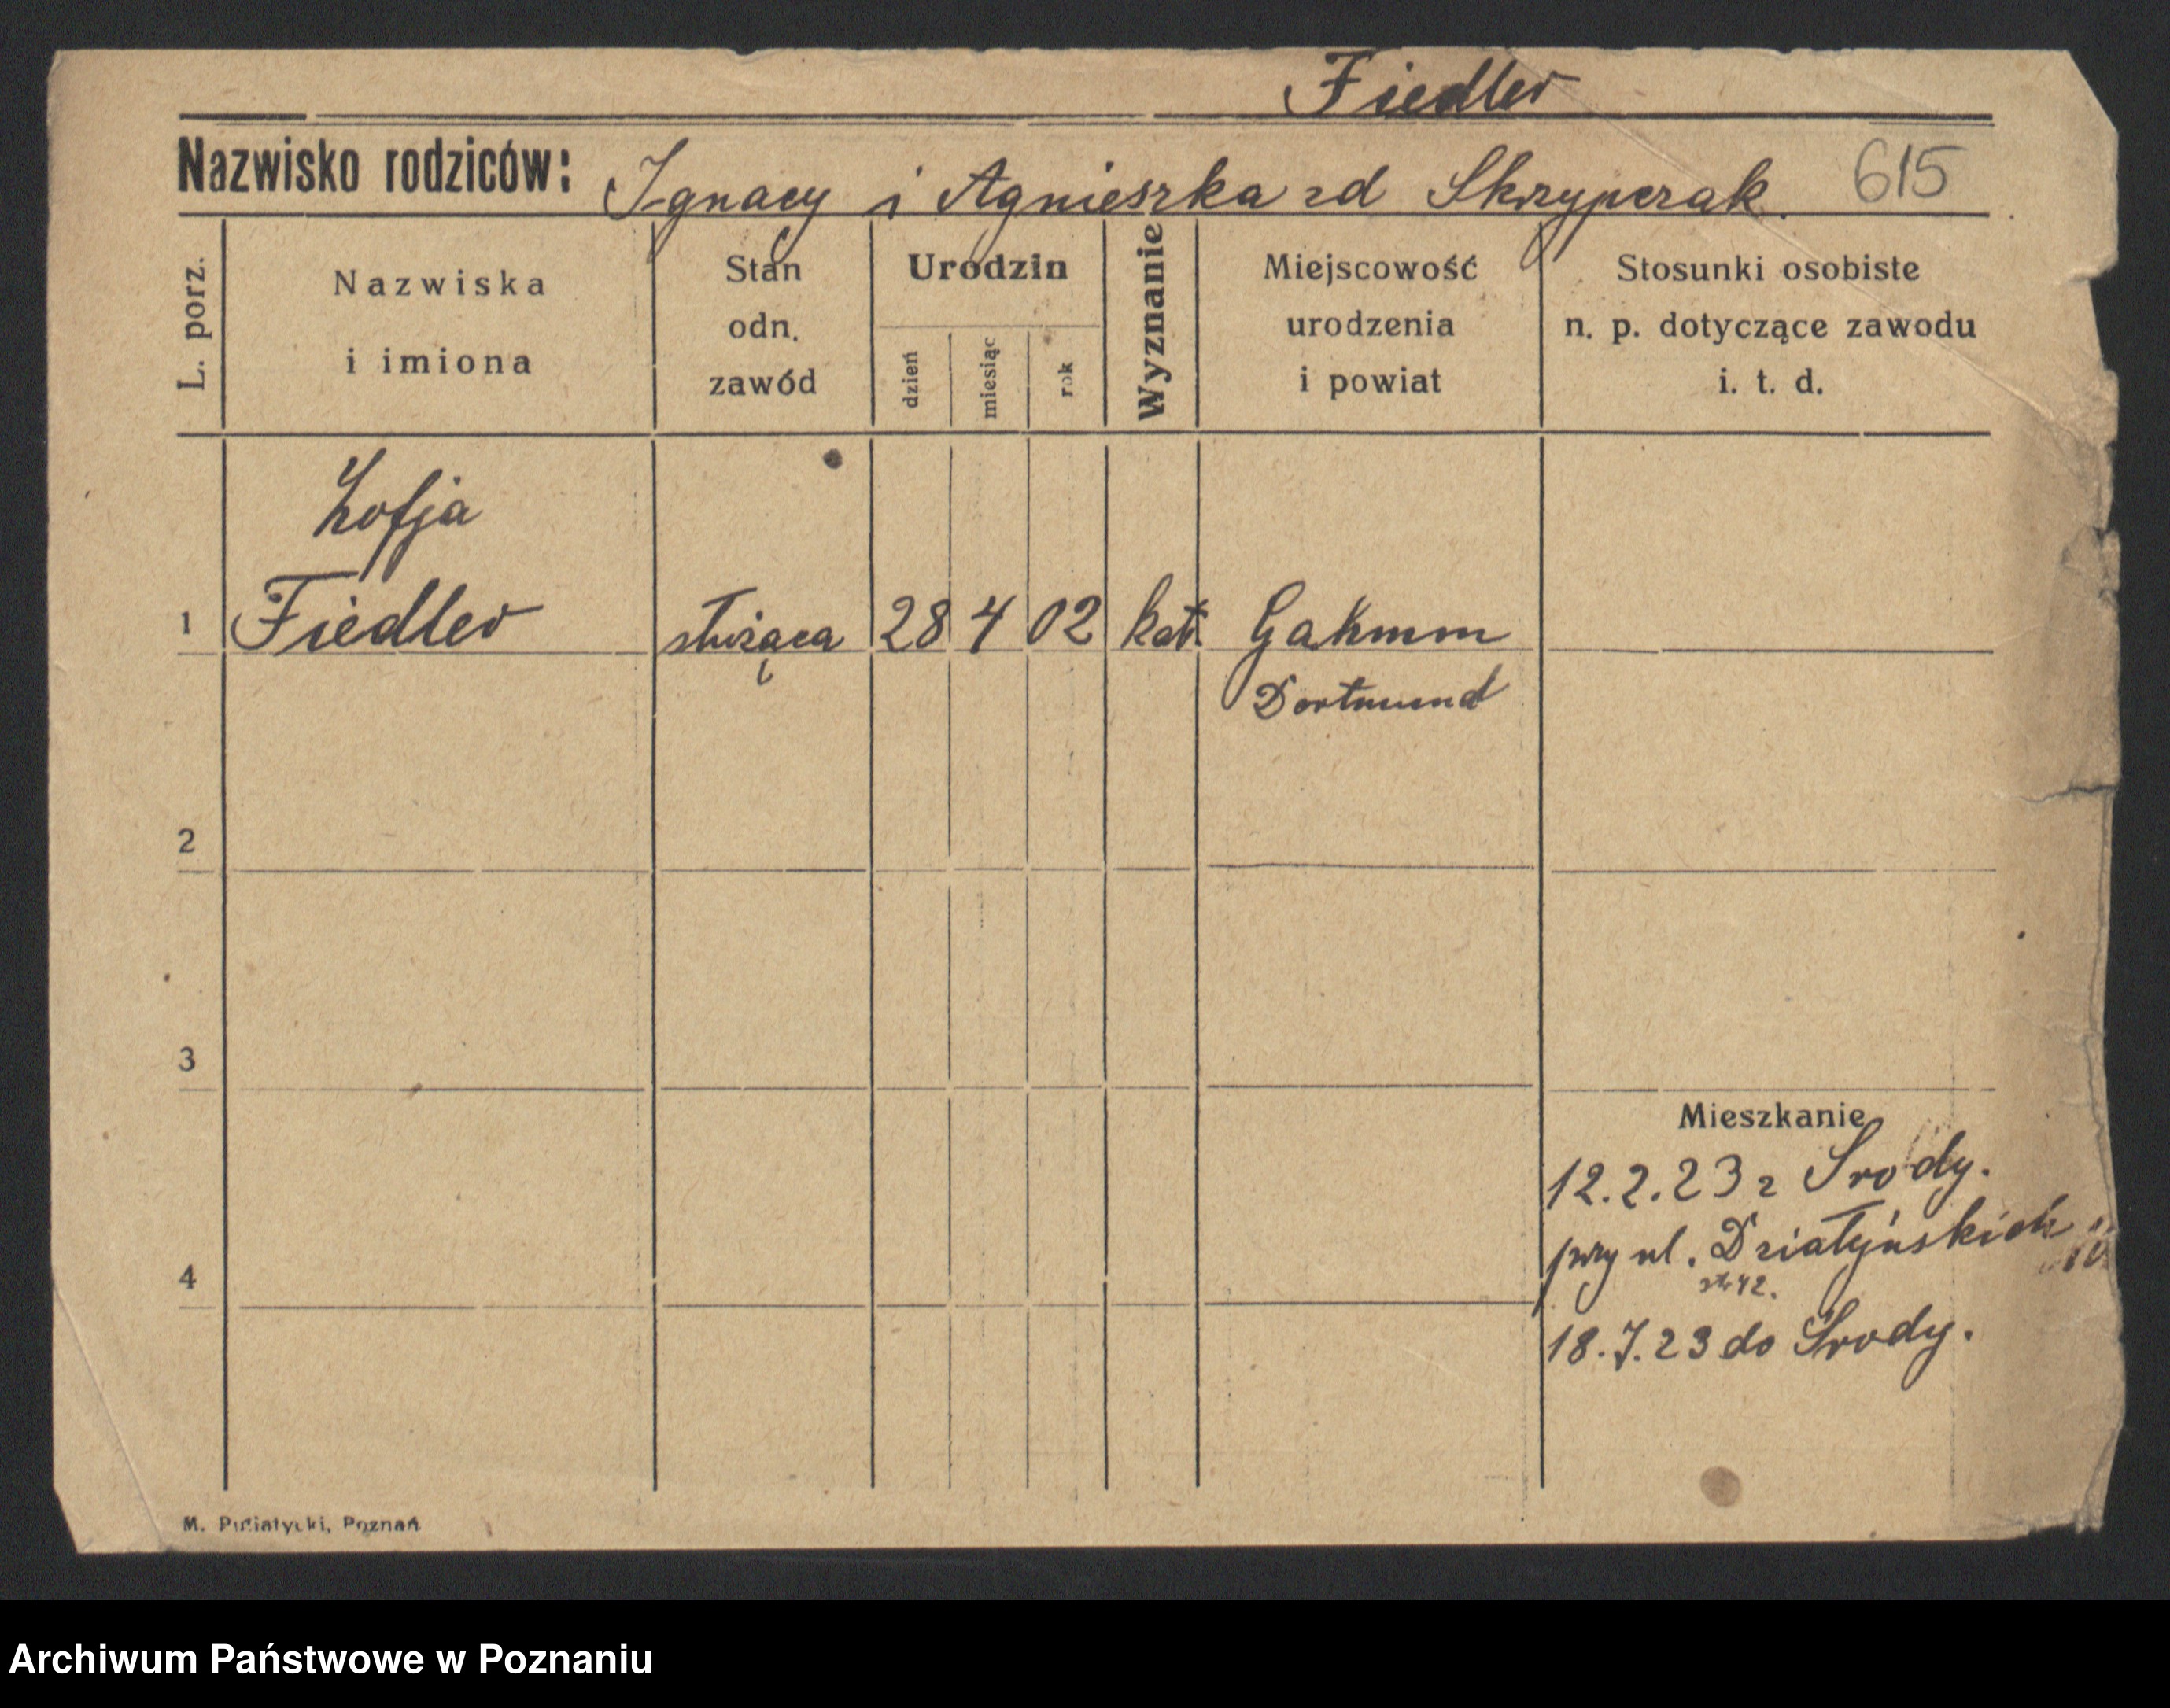 Fiedler
Nazwisko rodziców: Ignacy i Agnieszka zd Skrzypczak. 615
L. porz.
Nazwiska
i imiona
Stan
odn.
zawód
Urodzin
dzień
miesiąc
rok
Wyznanie
Miejscowość
urodzenia
i powiat
Stosunki osobiste
n. p. dotyczące zawodu
i. t. d.
Zofja
1 Fiedler służąca 28 4 02 kat. Gahmm
Dortmund
2
3
Mieszkanie
12.2.23 z Środy.
przy ul. Działyńskich
4
42.
18.7.23 do Środy.
M. Putiatycki, Poznań
Archiwum Państwowe w Poznaniu